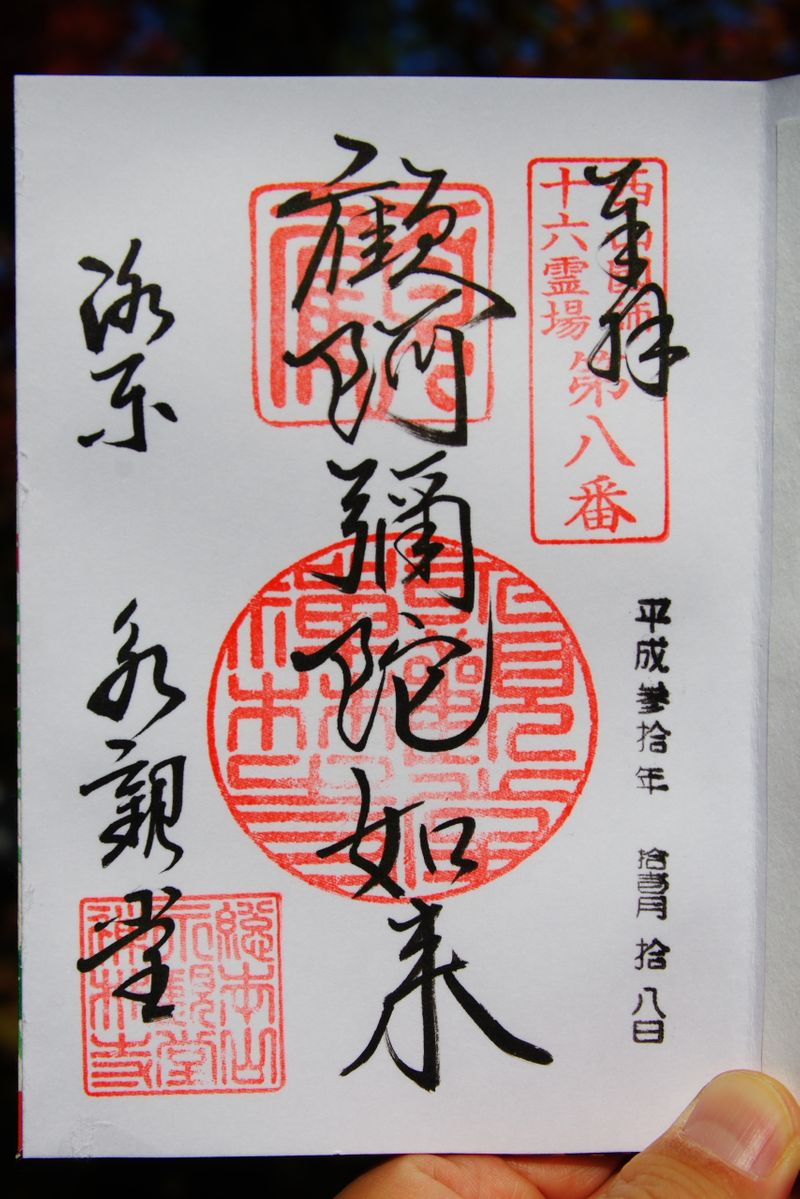 奉拝
西山國師
十六霊場
第八番
平成參拾年 拾壹月 拾八日
顧阿彌陀如来
洛東 永観堂
総本山
永観堂
禅林寺